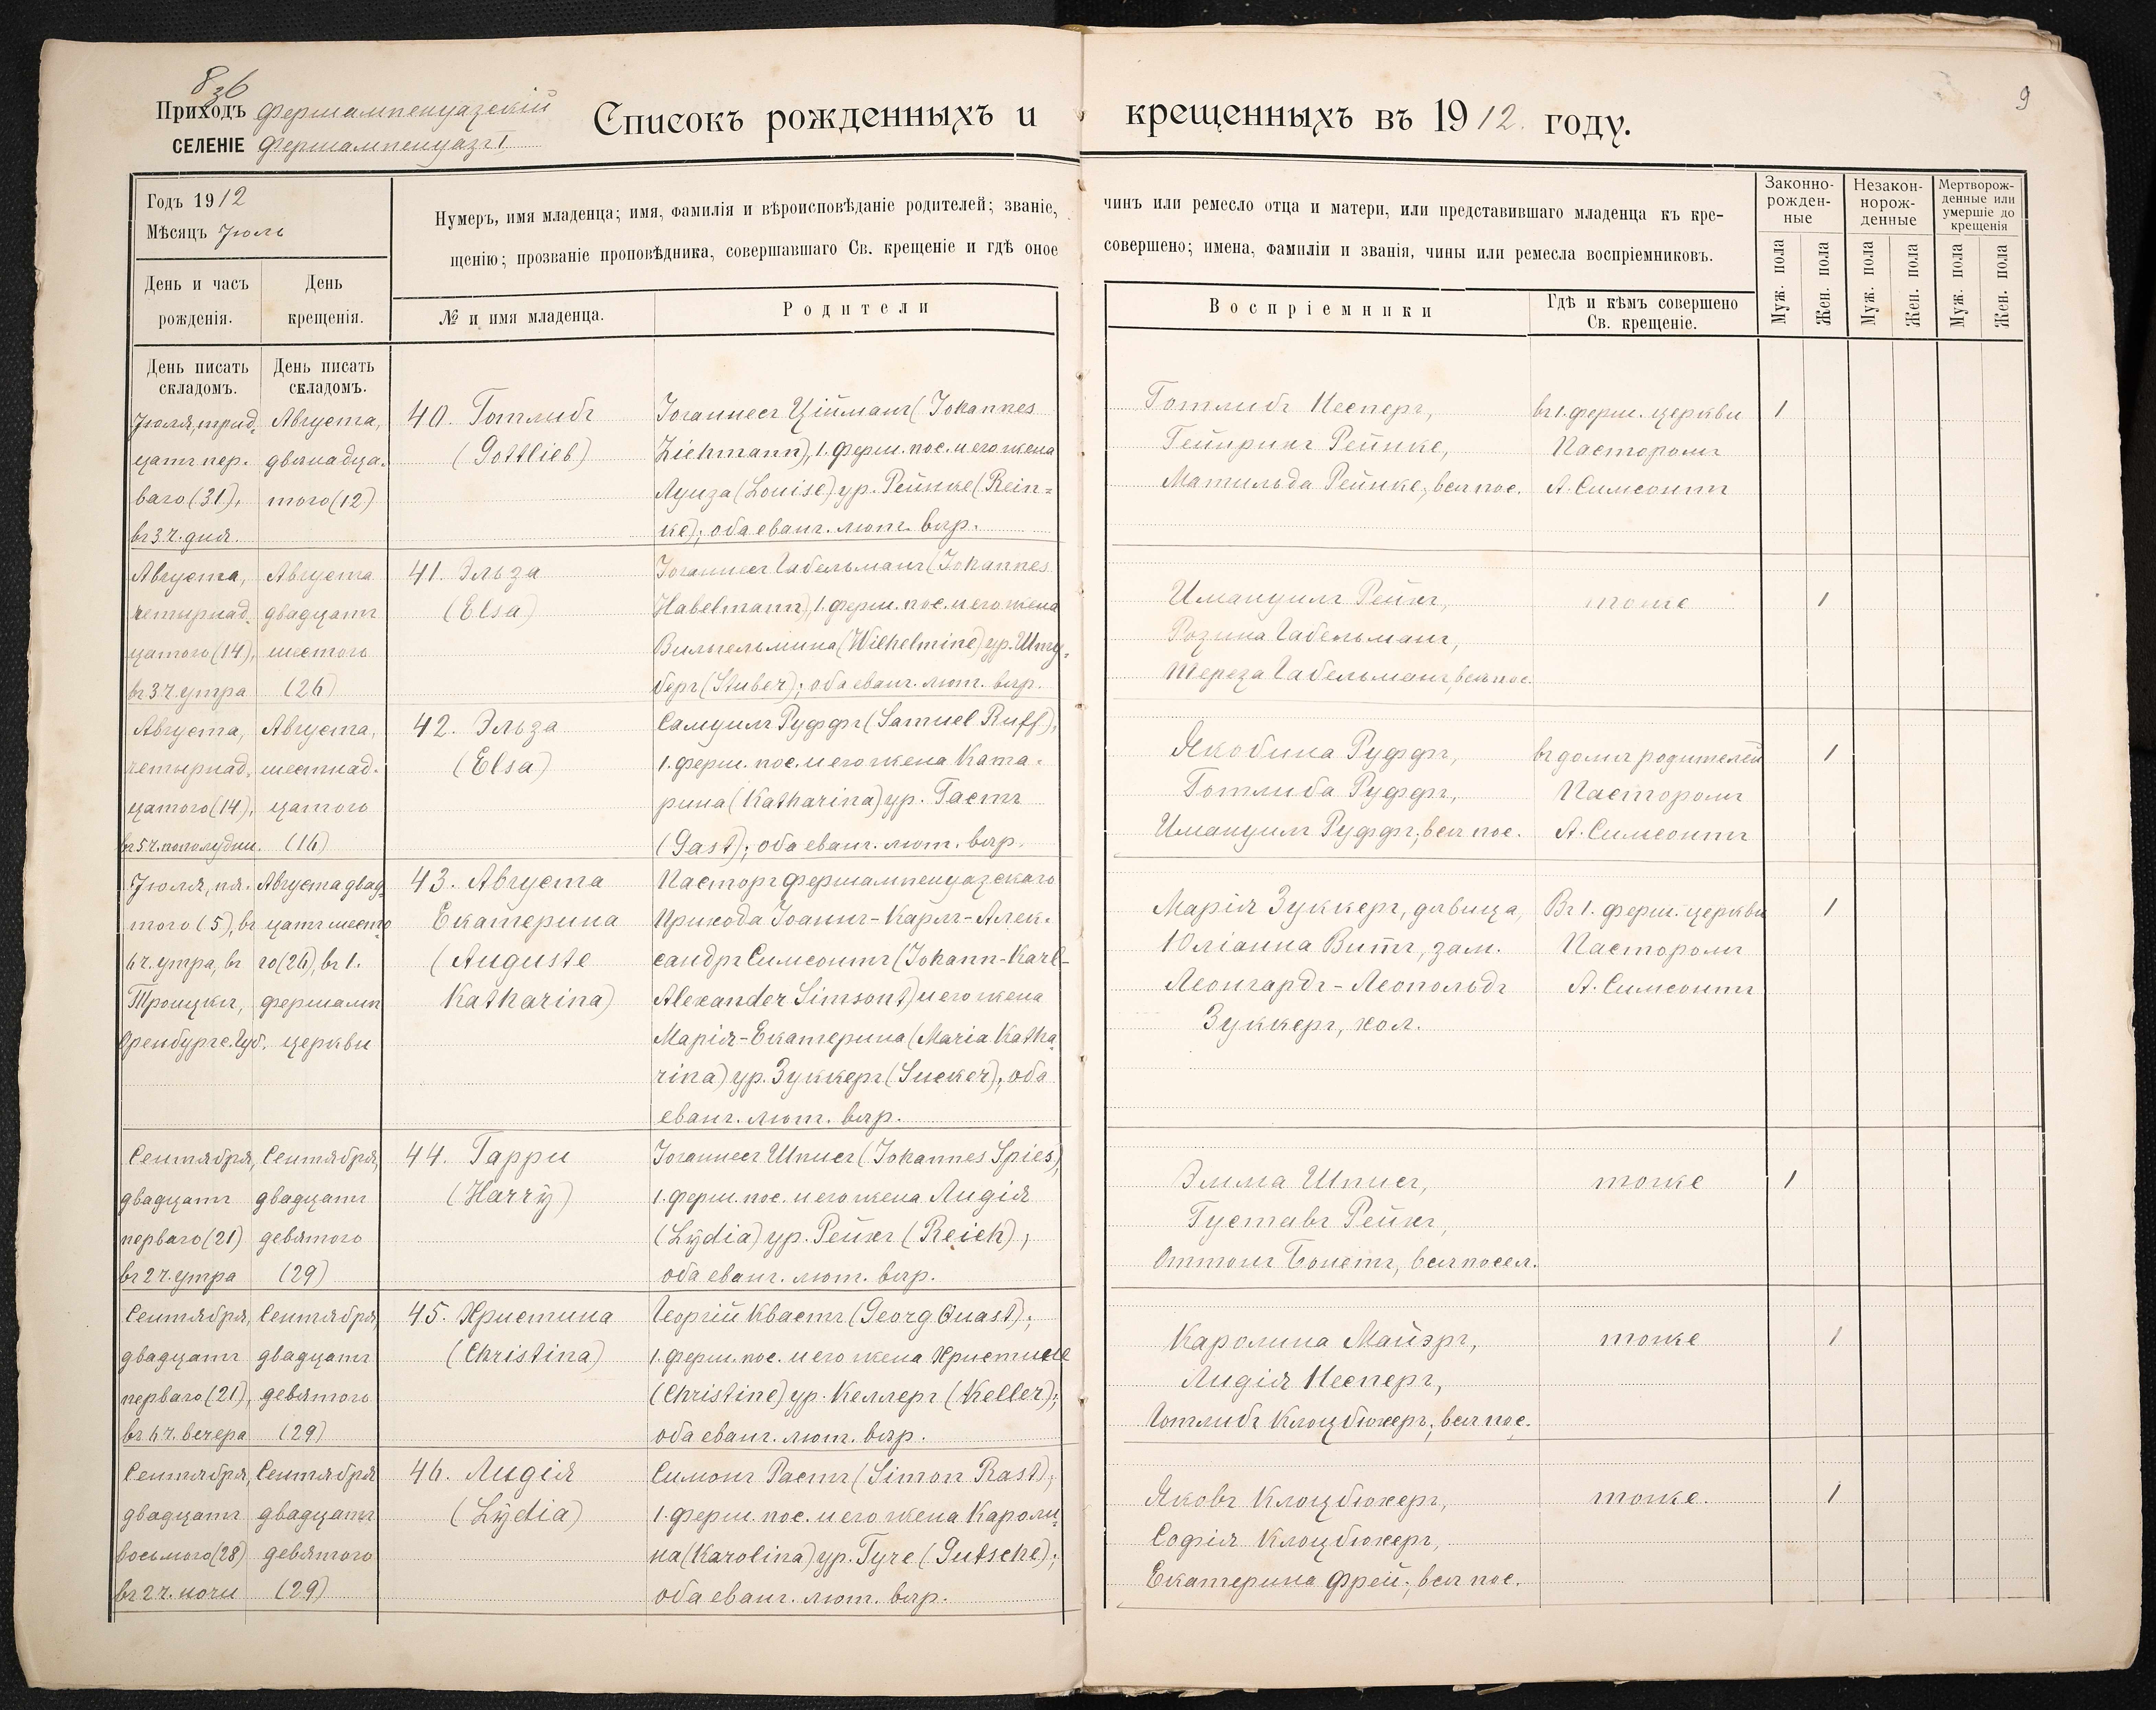 836
Приходъ Фершампенуазскій
СЕЛЕНІЕ Фершампенуазъ I.
Списокъ рожденныхъ и крещенныхъ въ 1912. году.
9
Годъ 1912
Мѣсяцъ Іюль
День и часъ рожденія.
День крещенія.
Нумеръ, имя младенца; имя, фамилія и вѣроисповѣданіе родителей; званіе, чинъ или ремесло отца и матери, или представившаго младенца къ кре-
щенію; прозваніе проповѣдника, совершавшаго Св. крещеніе и гдѣ оное совершено; имена, фамиліи и званія, чины или ремесла воспріемниковъ.
№ и имя младенца.
Родители
Воспріемники
Гдѣ и кѣмъ совершено
Св. крещеніе.
Законно-
рожден-
ные
Незакон-
норож-
денные
Мертворож-
денные или
умершіе до
крещенія
Муж. пола
Жен. пола
Муж. пола
Жен. пола
Муж. пола
Жен. пола
День писать
складомъ.
День писать
складомъ.
Іюля, трид-
цать пер-
ваго (31),
въ 3 ч. дня
Августа,
двѣнадца-
того (12)
40. Готлибъ
(Gottlieb)
Іоганнесъ Ційманъ (Johannes
Ziehmann), 1. ферш. пос. и его жена
Луиза (Louise) ур. Рейнке (Rein=
ke); оба еванг. лют. вѣр.
Готлибъ Несперъ,
Гейнрихъ Рейнке,
Матильда Рейнке, всѣ пос.
въ 1. ферш. церкви
Пасторомъ
А. Симсонтъ
1
Августа,
четырнад-
цатого (14),
въ 3 ч. утра
Августа
двадцать
шестого
(26)
41. Эльза
(Elsa)
Іоганнесъ Габельманъ (Johannes
Habelmann), 1. ферш. пос. и его жена
Вильгельмина (Wilhelmine) ур. Шту-
беръ (Stuber); оба еванг. лют. вѣр.
Имануилъ Рейхъ,
Розина Габельманъ,
Тереза Габельманъ, всѣ пос.
тоже
1
Августа,
четырнад-
цатого (14),
въ 5 ч. пополудни.
Августа,
шестнад-
цатого
(16)
42. Эльза
(Elsa)
Самуилъ Руффъ (Samuel Ruff),
1. ферш. пос. и его жена Ката-
рина (Katharina) ур. Гастъ
(Gast); оба еванг. лют. вѣр.
Якобина Руффъ,
Готлиба Руффъ,
Имануилъ Руффъ; всѣ пос.
въ домѣ родителей
Пасторомъ
А. Симсонтъ
1
Іюля, пя-
того (5), въ
6 ч. утра, въ
Троицкѣ,
Оренбургс. Губ.
Августа двад-
цать шесто
го (26), въ 1.
фершамп
церкви
43. Августа
Екатерина
(Auguste
Katharina)
Пасторъ Фершампенуазскаго
Прихода Іоаннъ-Карлъ-Алек-
сандръ Симсонтъ (Johann-Karl-
Alexander Simsont) и его жена
Марія-Екатерина (Maria Katha
rina) ур. Зуккеръ (Sucker); оба
еванг. лют. вѣр.
Марія Зуккеръ, дѣвица,
Юліанна Виттъ, зам.
Леонгардъ-Леопольдъ
Зуккеръ, хол.
Въ 1. ферш. церкви
Пасторомъ
А. Симсонтъ
1
Сентября,
двадцать
перваго (21)
въ 2 ч. утра
Сентября,
двадцать
девятого
(29)
44. Гарри
(Harrÿ)
Іоганнесъ Шписъ (Johannes Spies),
1. ферш. пос. и его жена Лидія
(Lÿdia) ур. Рейхъ (Reich);
оба еванг. лют. вѣр.
Элима Шписъ,
Густавъ Рейхъ,
Оттонъ Бонетъ, всѣ посел.
тоже
1
Сентября,
двадцать
перваго (21),
въ 6 ч. вечера
Сентября,
двадцать
девятого
(29)
45. Христина
(Christina)
Георгій Квастъ (Georg Quast);
1. ферш. пос. и его жена Христине
(Christine) ур. Келлеръ (Keller);
оба еванг. лют. вѣр.
Каролина Майэръ,
Лидія Несперъ,
Готлибъ Клоцбюхеръ; всѣ пос.
тоже
1
Сентября,
двадцать
восьмого (28)
въ 2 ч. ночи
Сентября
двадцать
девятого
(29)
46. Лидія
(Lÿdia)
Симонъ Растъ (Simon Rast);
1. ферш. пос. и его жена Кароли-
на (Karolina) ур. Гуче (Gutsche);
оба еванг. лют. вѣр.
Яковъ Клоцбюхеръ,
Софія Клоцбюхеръ,
Екатерина Фрей; всѣ пос.
тоже.
1